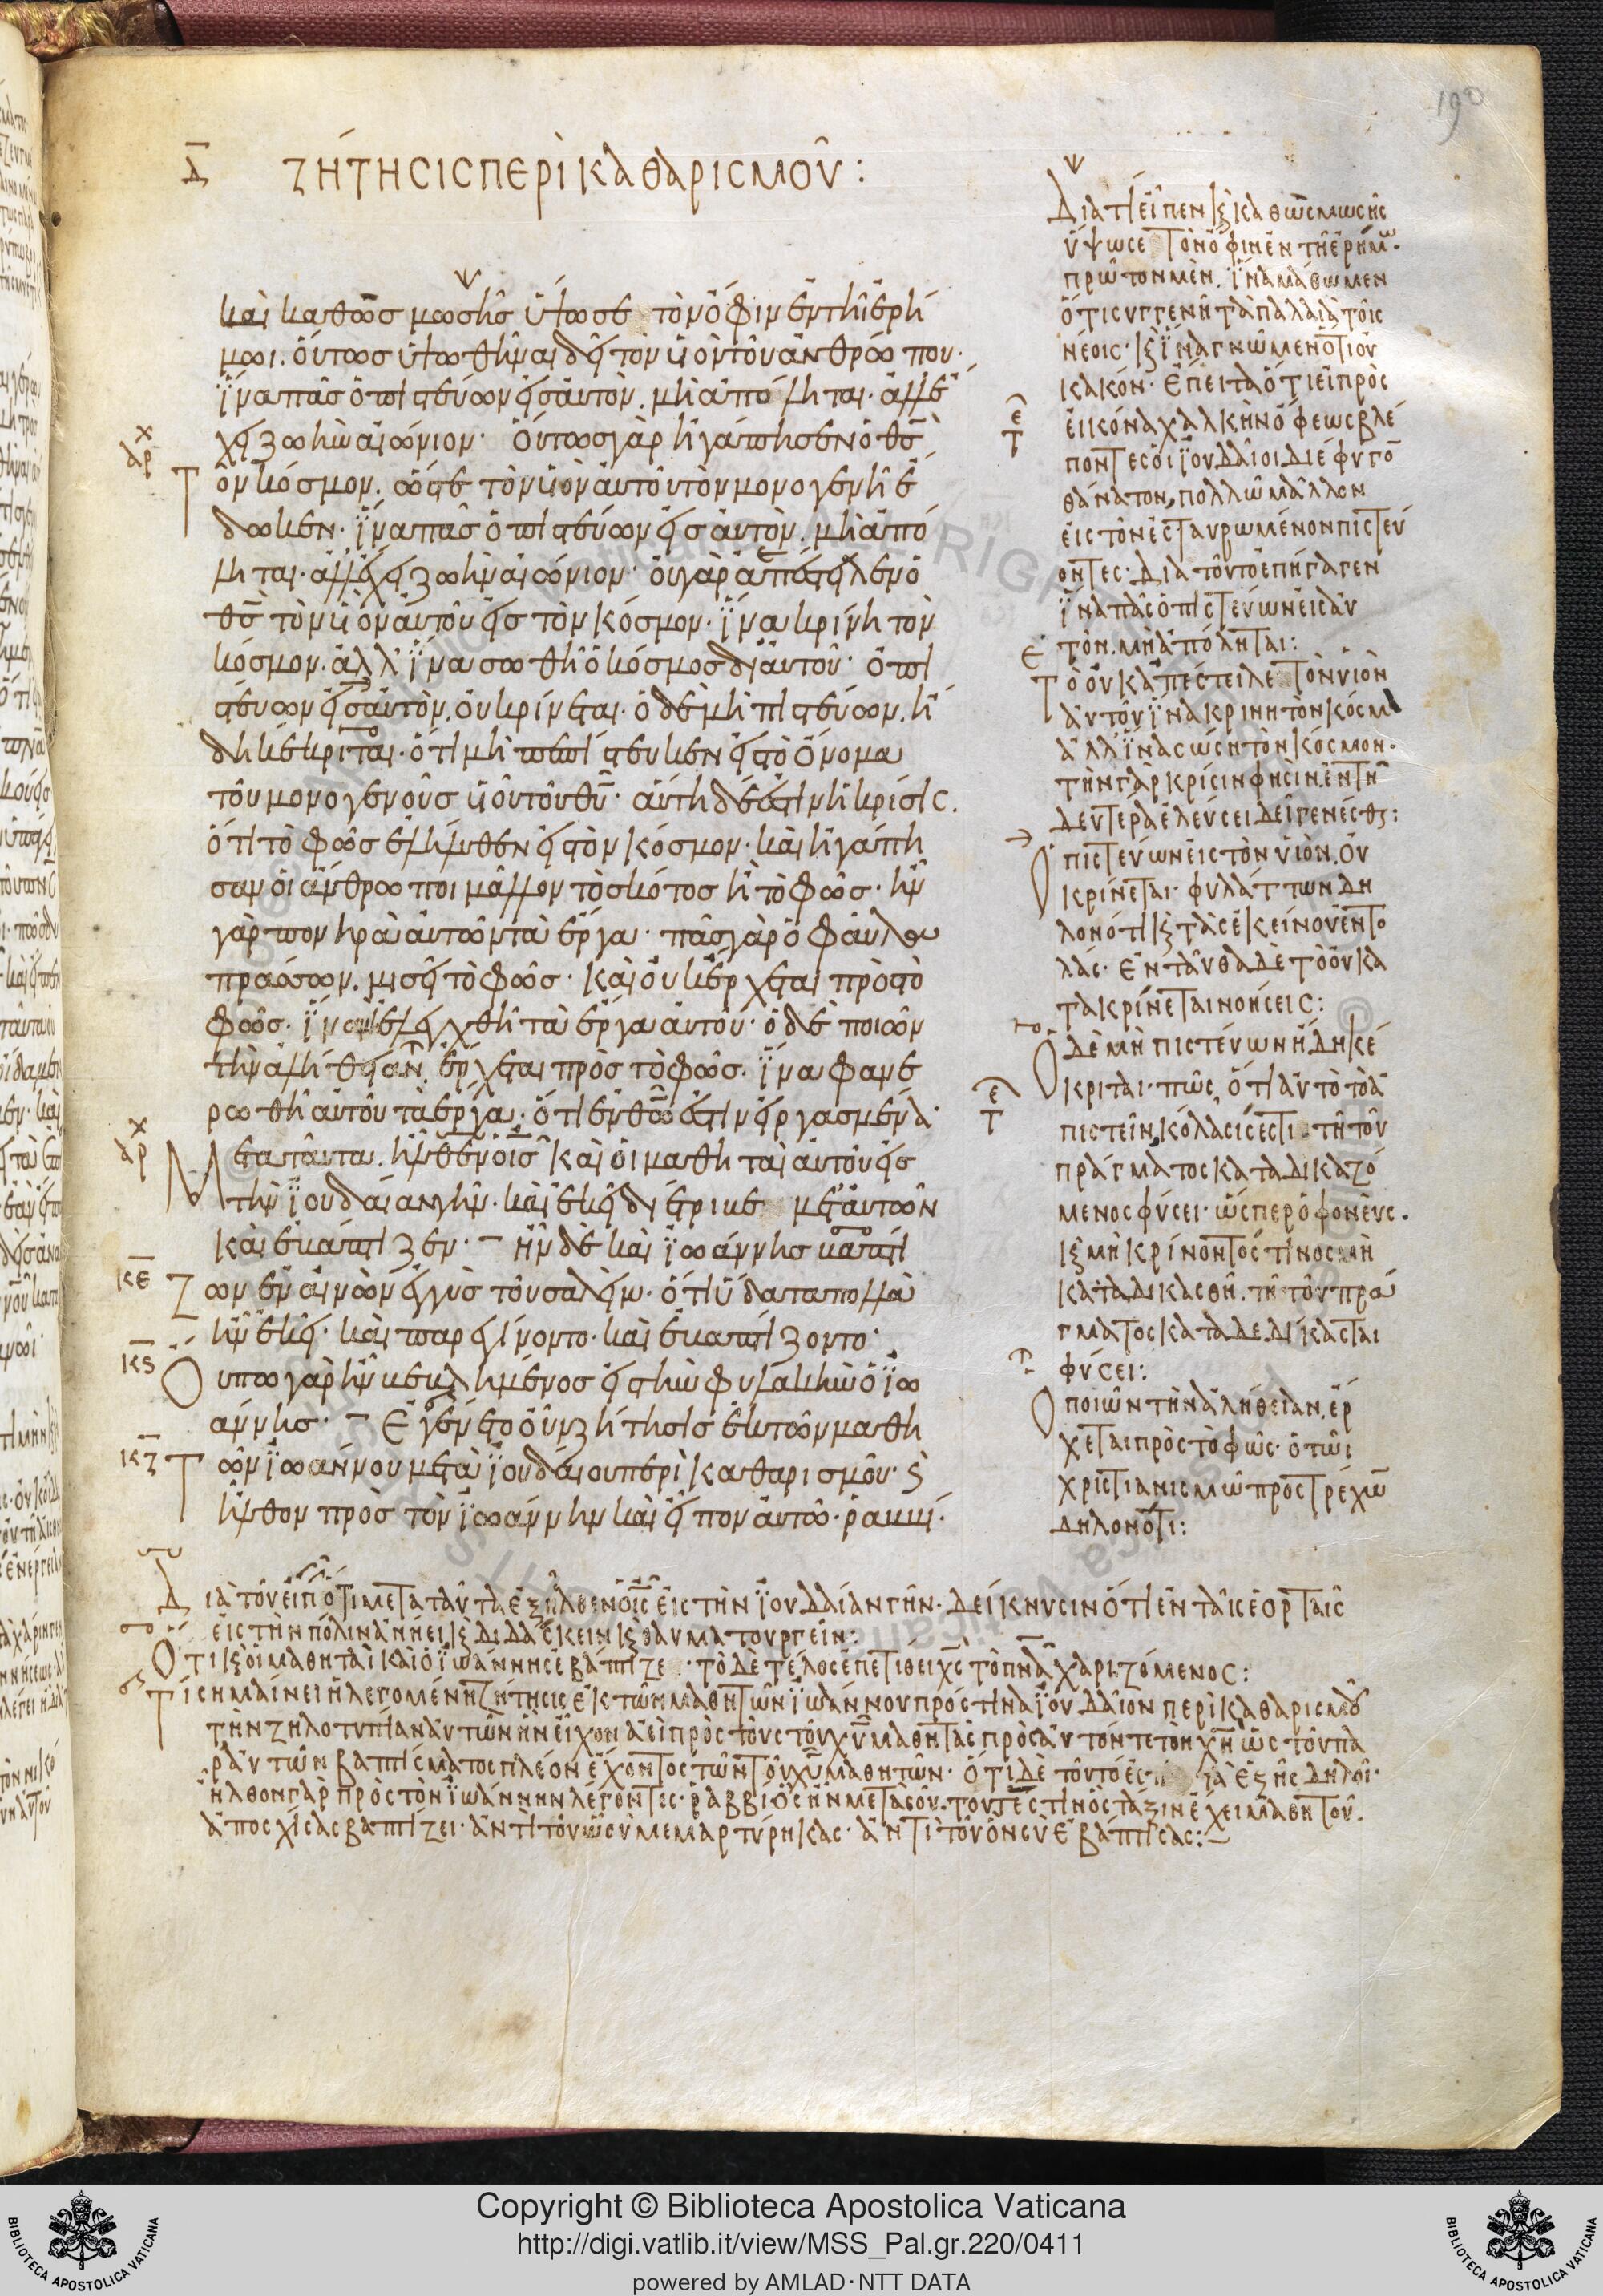 190
Δ ζήτησις περὶ καθαρισμοῦ:
καὶ καθὼς μωσῆς ὕψωσε τὸν ὄφιν ἐν τῆ ἐρή
μωι. οὕτως ὑψωθῆναι δεῖ τὸν υἱὸν τοῦ ἀνθρώπου.
ἵνα πᾶς ὁ πιστεύων εἰς αὐτὸν. μὴ ἀπόληται. ἀλλ' ἔ
χει ζωὴν αἰώνιον. οὕτως γὰρ ἠγάπησεν ὁ θς
Τὸν κόσμον. ὥστε τὸν υἱὸν αὐτοῦ τὸν μονογενῆ ἔ
δωκεν. ἵνα πᾶς ὁ πιστεύων εἰς αὐτὸν. μὴ ἀπό
ληται. ἀλλ' ἔχει ζωὴν αἰώνιον. οὐ γὰρ ἀπέστειλεν ὁ
θς τὸν υἱὸν αὐτοῦ εἰς τὸν κόσμον. ἵνα κρίνη τὸν
κόσμον. ἀλλ' ἵνα σωθῆ ὁ κόσμος δι αὐτοῦ. ὁ πι
στεύων εἰς αὐτὸν. οὐ κρίνεται. ὁ δὲ μὴ πιστεύων. ἤ
δη κέκριται. ὅτι μὴ πεπίστευκεν εἰς τὸ ὄνομα
τοῦ μονογενοῦς υἱοῦ τοῦ θυ. αὕτη δέ ἐστιν ἡ κρίσις.
ὅτι τὸ φῶς ἐλήλυθεν εἰς τὸν κόσμον. καὶ ἠγάπη
σαν οἱ ἄνθρωποι μᾶλλον τὸ σκότος ἢ τὸ φῶς. ἦν
γὰρ πονηρὰ αὐτῶν τὰ ἔργα. πᾶς γὰρ ὁ φαῦλα
πράσσων. μισεῖ τὸ φῶς. καὶ οὐκ ἔρχεται πρὸς τὸ
φῶς. ἵνα μὴ ἐλεγχθῆ τὰ ἔργα αὐτοῦ. ὁ δὲ ποιῶν
τὴν ἀλήθειαν. ἔρχεται πρὸς τὸ φῶς. ἵνα φανε
ρωθῆ αὐτοῦ τὰ ἔργα. ὅτι ἐν θω ἐστιν εἰργασμένα.
Μετὰ ταῦτα. ἦλθεν ὁ ις καὶ οἱ μαθηταὶ αὐτοῦ εἰς
τὴν ἰουδαίαν γῆν. καὶ ἐκεῖ διέτριβε μετ' αὐτῶν
καὶ ἐβάπτιζεν. ἦν δὲ καὶ ἰωάννης βαπτί
ΚΕ ζων ἐν αἰνὼν ἐγγὺς τοῦ σαλείμ. ὅτι ὕδατα πολλὰ
ἦν ἐκεῖ. καὶ παρεγίνοντο. καὶ ἐβαπτίζοντο.
Κς Οὔπω γὰρ ἦν βεβλημένος εἰς τὴν φυλακὴν ὁ ἰω
άννης. Ἐγένετο οὖν ζήτησις ἐκ τῶν μαθη
ΚΖ Τῶν ἰωάννου μετὰ ἰουδαίου περὶ καθαρισμοῦ. ϛ
ἦλθον πρὸς τὸν ἰωάννην καὶ εἶπον αὐτῶ. ῥαββί.
Διατί εἶπεν ϗ καθὼς μωσῆς
ὕψωσε τὸν ὄφιν ἐν τῆ ἐρήμω.
πρῶτον μὲν. ἵνα μάθωμεν
ὅτι συγγενῆ τὰ παλαιὰ τοῖς
νέοις. ϗ ἵνα γνῶμεν ὅτι οὐ
κακόν. ἔπειτα ὅτι εἰ πρὸς
εἰκόνα χαλκῆν ὄφεως βλέ
ποντες οἱ ἰουδαῖοι διέφυγο
θάνατον, πολλῶ μᾶλλον
εἰς τὸν ἐσταυρωμένον πιστεύ
οντες. διατοῦτο ἐπήγαγεν
ἵνα πᾶς ὁ πιστεύων εἰς αὐ
τὸν. μὴ ἀπόληται:
Τὸ οὐκ ἀπέστειλε τὸν υἱὸν
αὐτοῦ ἵνα κρίνη τὸν κόσμ
ἀλλ' ἵνα σώση τὸν κόσμον.
τὴν γὰρ κρίσιν φησὶν ἐν τῆ
δευτέρα ἐλεύσει δεῖ γενέσθαι:
Ὁ πιστεύων εἰς τὸν υἱὸν. οὐ
κρίνεται. φυλάττων δη
λονότι ϗ τὰς ἐκείνου ἐντο
λάς. ἐνταῦθα δὲ τὸ οὐ κα
τακρίνεται νοήσεις:
Ὁ δὲ μὴ πιστεύων ἤδη κέ
κριται. πῶς, ὅτι αὐτὸ τὸ ἀ
πιστεῖν, κόλασίς ἐστι. τῆ τοῦ
πράγματος καταδικαζό
μενος φύσει. ὥσπερ ὁ φονεὺς.
ϗ μὴ κρίνοντός τινος μὴ
καταδικασθῆ. τῆ τοῦ πρά
γματος καταδεδίκασται
φύσει:
Ὁ ποιῶν τὴν ἀλήθειαν. ἔρ
χεται πρὸς τὸ φῶς. ὁ τῶι
χριστιανισμῶ προστρέχω
δηλονότι:
Διὰ τοῦ εἰπ ὅτι μετὰ ταῦτα ἐξῆλθεν ὁ ις εἰς τὴν ἰουδαίαν γῆν. δείκνυσιν ὅτι ἐν ταῖς ἑορταῖς
εἰς τὴν πόλιν ἀνήει ϗ διδάσκειν ϗ θαυματουργεῖν:
Ὅτι ϗ οἱ μαθηταὶ καὶ ὁ ἰωάννης ἐβάπτιζε. τὸ δὲ τέλος ἐπετίθει χς τὸ πνα χαριζόμενος:
Τί σημαίνει ἡ λεγομένη ζήτησις ἐκ τῶν μαθητῶν ἰωάννου πρός τινα ἰουδαῖον περὶ καθαρισμοῦ
τὴν ζηλοτυπίαν αὐτῶν ἣν εἶχον ἀεὶ πρὸς τοὺς τοῦ χυ μαθητὰς πρὸς αὐτόν τε τὸν χν ὡς τοῦ πα
ρ' αὐτῶν βαπτίσματος πλέον ἔχοντος τῶν τοῦ χυ μαθητῶν. ὅτι δὲ τοῦτό ἐστι τὰ ἑξῆς δηλοῖ.
ἦλθον γὰρ πρὸς τὸν ἰωάννην λέγοντες. ῥαββί ὃς ἦν μετὰ σοῦ. τουτέστιν ὃς τάξιν ἔχει μαθητοῦ.
ἀποσχίσας βαπτίζει. ἀντὶ τοῦ ὧ σὺ μεμαρτύρηκας. ἀντὶ τοῦ ὃν σὺ ἐβάπτισας:
Copyright © Biblioteca Apostolica Vaticana
http://digi.vatlib.it/view/MSS_Pal.gr.220/0411
powered by AMLAD·NTT DATA
BIBLIOTECA APOSTOLICA VATICANA
BIBLIOTECA APOSTOLICA VATICANA